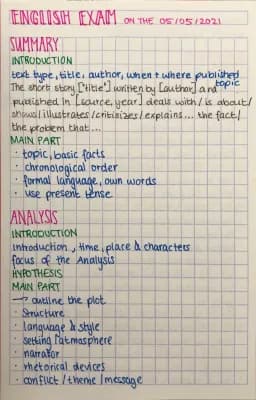 ENGLISH EXAM ON THE 05/05/2021
SUMMARY
INTRODUCTION
text type, title, author, when + where published
topic
The short story ["title"] written by [author] and
published in [source, year] deals with / is about/
shows/illustrates/critisizes/explains... the fact/
the problem that...
MAIN PART
· topic, basic facts
· chronological order
· formal language, own words
· use present tense
ANALYSIS
INTRODUCTION
Introduction, time, place & characters
focus of the Analysis
HYPOTHESIS
MAIN PART
→ outline the plot
· Structure
· language & style
· setting / atmosphere
· narrator
· rhetorical devices
· conflict / theme / message